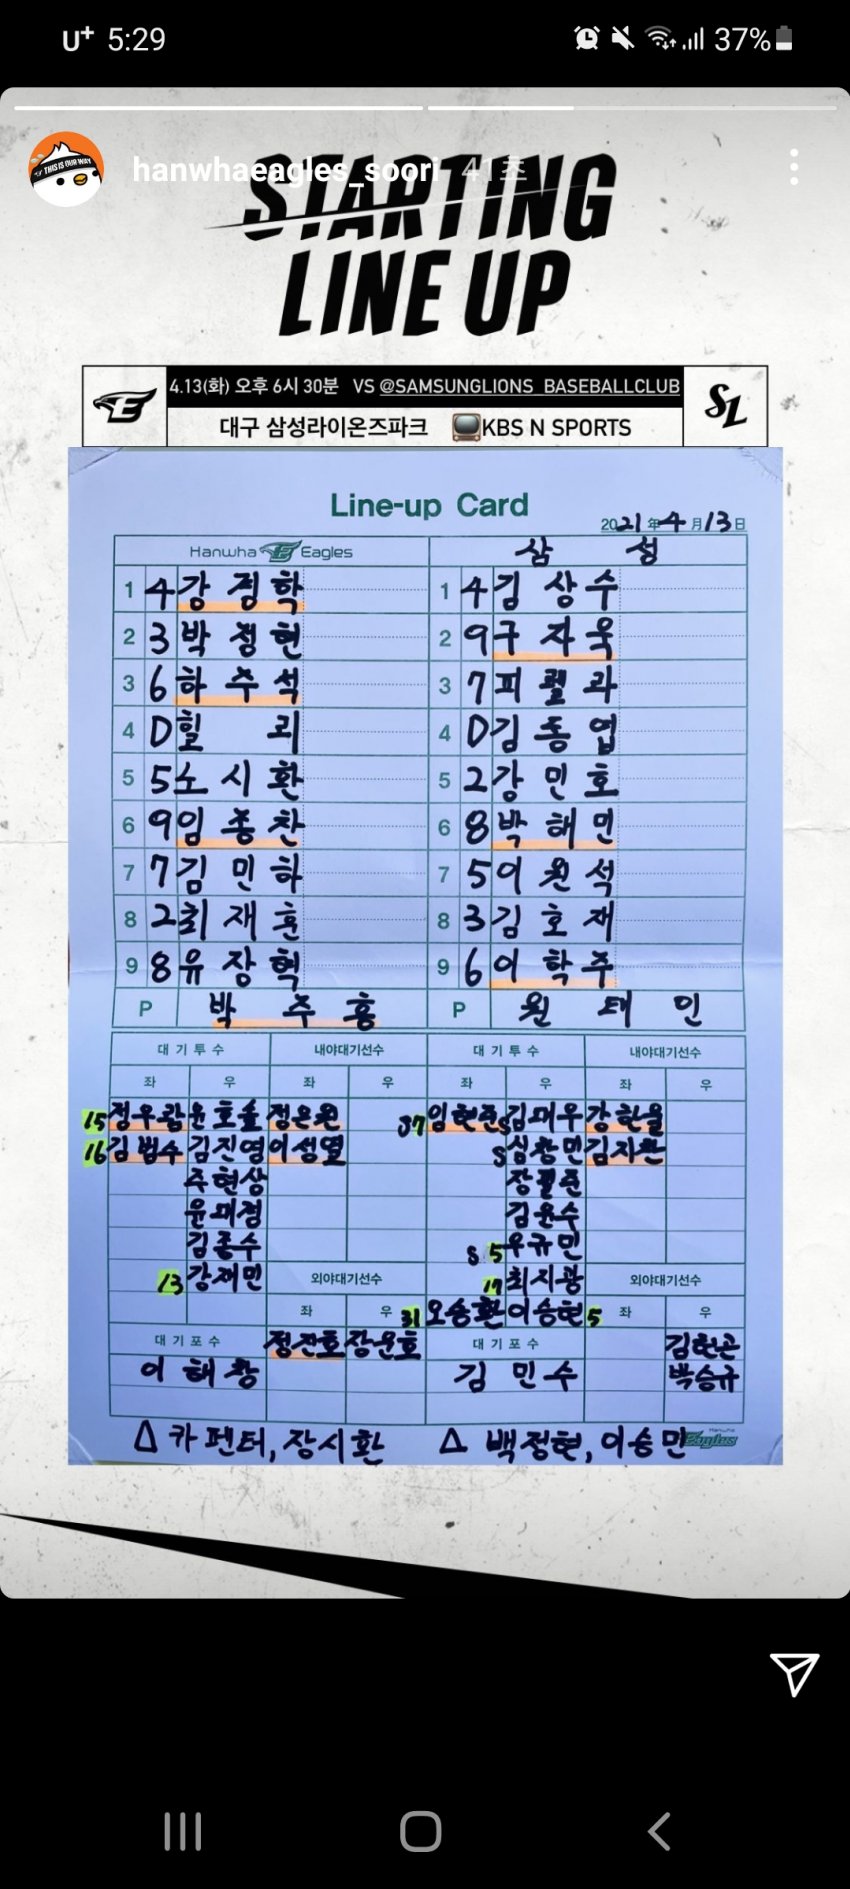 U+ 5:29 37%
hanwhaeagles_soori 41초
STARTING
LINE UP
4.13(화) 오후 6시 30분 VS @SAMSUNGLIONS_BASEBALLCLUB
대구 삼성라이온즈파크 KBS N SPORTS
Line-up Card
2021年 4月 13日
Hanwha Eagles 삼 성
1 4 강경학 1 4 김상수
2 3 박정현 2 9 구자욱
3 6 하주석 3 7 피렐라
4 D 힐리 4 D 김동엽
5 5 노시환 5 2 강민호
6 9 임종찬 6 8 박해민
7 7 김민하 7 5 이원석
8 2 최재훈 8 3 김호재
9 8 유장혁 9 6 이학주
P 박주홍 P 원태인
대기투수 내야대기선수 대기투수 내야대기선수
좌 우 좌 우 좌 우 좌 우
15 정우람 윤호솔 정은원 37 임현준 S 김대우 강한울
16 김범수 김진영 이성열 S 심창민 김지찬
주현상 장필준
윤대경 김윤수
김종수 S 5 우규민
13 강재민 외야대기선수 17 최지광 외야대기선수
좌 우 31 오승환 이승현 5 좌 우
대기포수 정진호 장운호 대기포수 김헌곤
이해창 김민수 박승규
△ 카펜터, 장시환 △ 백정현, 이승민 Hanwha Eagles